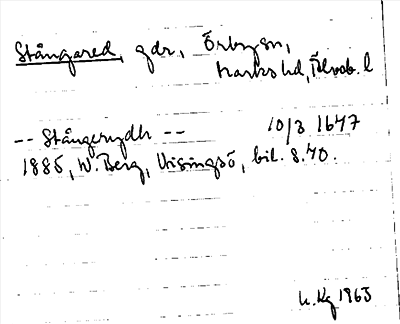 Stångared, gdr, Örby sn,
Marks hd, Älvsb. l
-- Stångerydh -- 10/3 1647
1885, W. Berg, Visingsö, bil. s. 70.